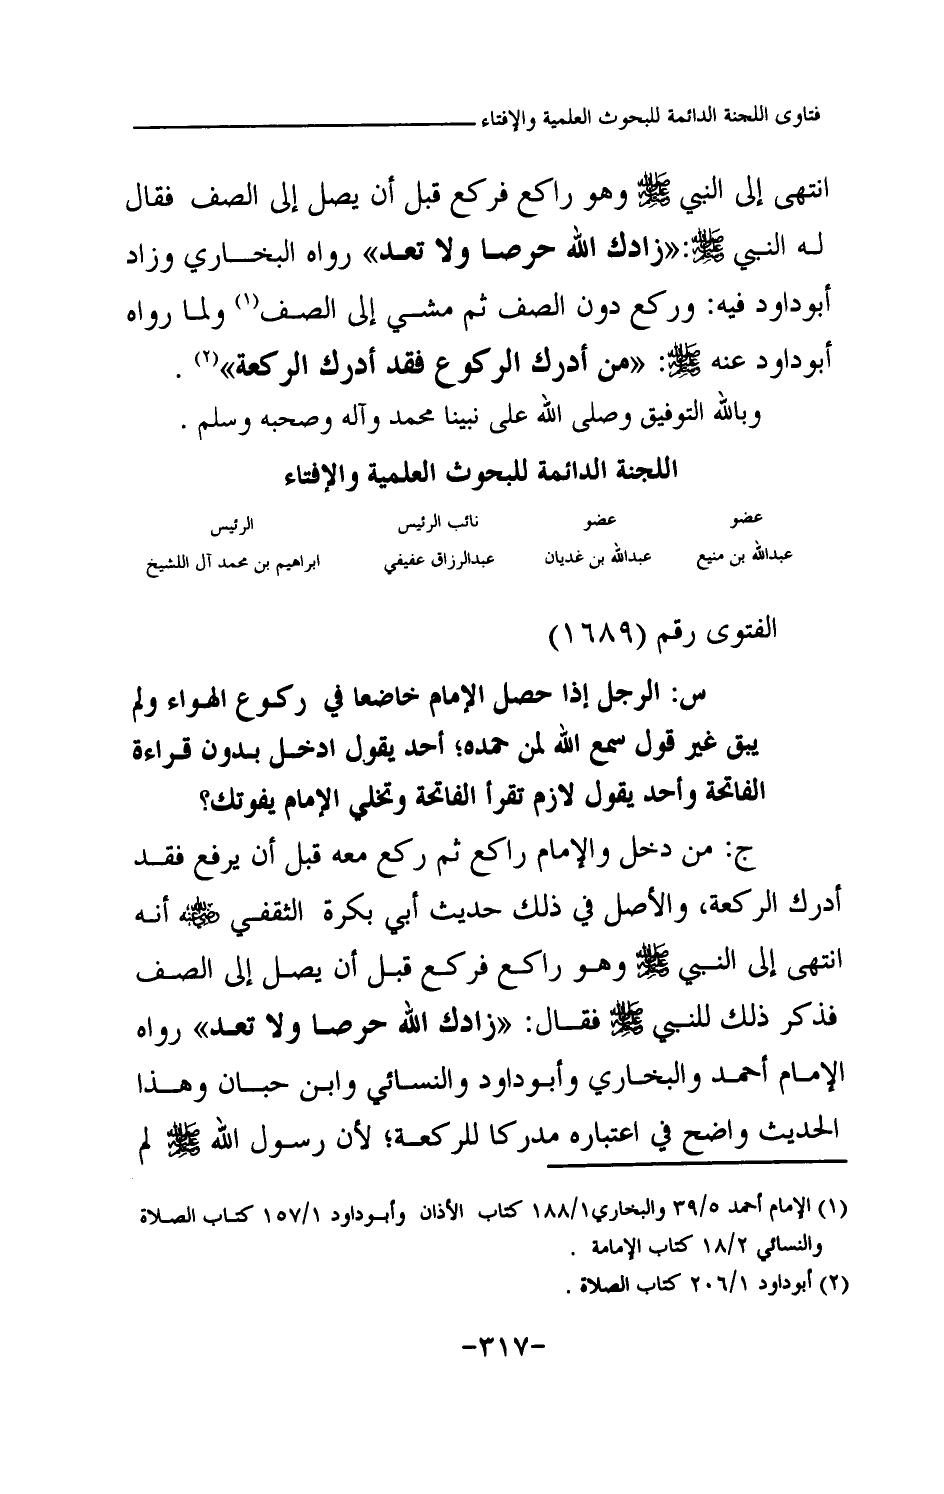 فتاوى اللجنة الدائمة للبحوث العلمية والإفتاء
انتهى إلى النبي ﷺ وهو راكع فركع قبل أن يصل إلى الصف فقال
له النبي ﷺ: «زادك الله حرصا ولا تعد» رواه البخاري وزاد
أبوداود فيه: وركع دون الصف ثم مشي إلى الصف(١) ولما رواه
أبوداود عنه ﷺ: «من أدرك الركوع فقد أدرك الركعة»(٢) .
وبالله التوفيق وصلى الله على نبينا محمد وآله وصحبه وسلم .
اللجنة الدائمة للبحوث العلمية والإفتاء
عضو عضو نائب الرئيس الرئيس
عبدالله بن منيع عبدالله بن غديان عبدالرزاق عفيفي ابراهيم بن محمد آل اللشيخ
الفتوى رقم (١٦٨٩)
س: الرجل إذا حصل الإمام خاضعا في ركوع الهواء ولم
يبق غير قول سمع الله لمن حمده؛ أحد يقول ادخل بدون قراءة
الفاتحة وأحد يقول لازم تقرأ الفاتحة وتخلي الإمام يفوتك؟
ج: من دخل والإمام راكع ثم ركع معه قبل أن يرفع فقد
أدرك الركعة، والأصل في ذلك حديث أبي بكرة الثقفي رضي الله عنه أنه
انتهى إلى النبي ﷺ وهو راكع فركع قبل أن يصل إلى الصف
فذكر ذلك للنبي ﷺ فقال: «زادك الله حرصا ولا تعد» رواه
الإمام أحمد والبخاري وأبوداود والنسائي وابن حبان وهذا
الحديث واضح في اعتباره مدركا للركعة؛ لأن رسول الله ﷺ لم
(١) الإمام أحمد ٣٩/٥ والبخاري١/١٨٨ كتاب الأذان وأبوداود ١٥٧/١ كتاب الصلاة
والنسائي ١٨/٢ كتاب الإمامة .
(٢) أبوداود ٢٠٦/١ كتاب الصلاة .
-٣١٧-